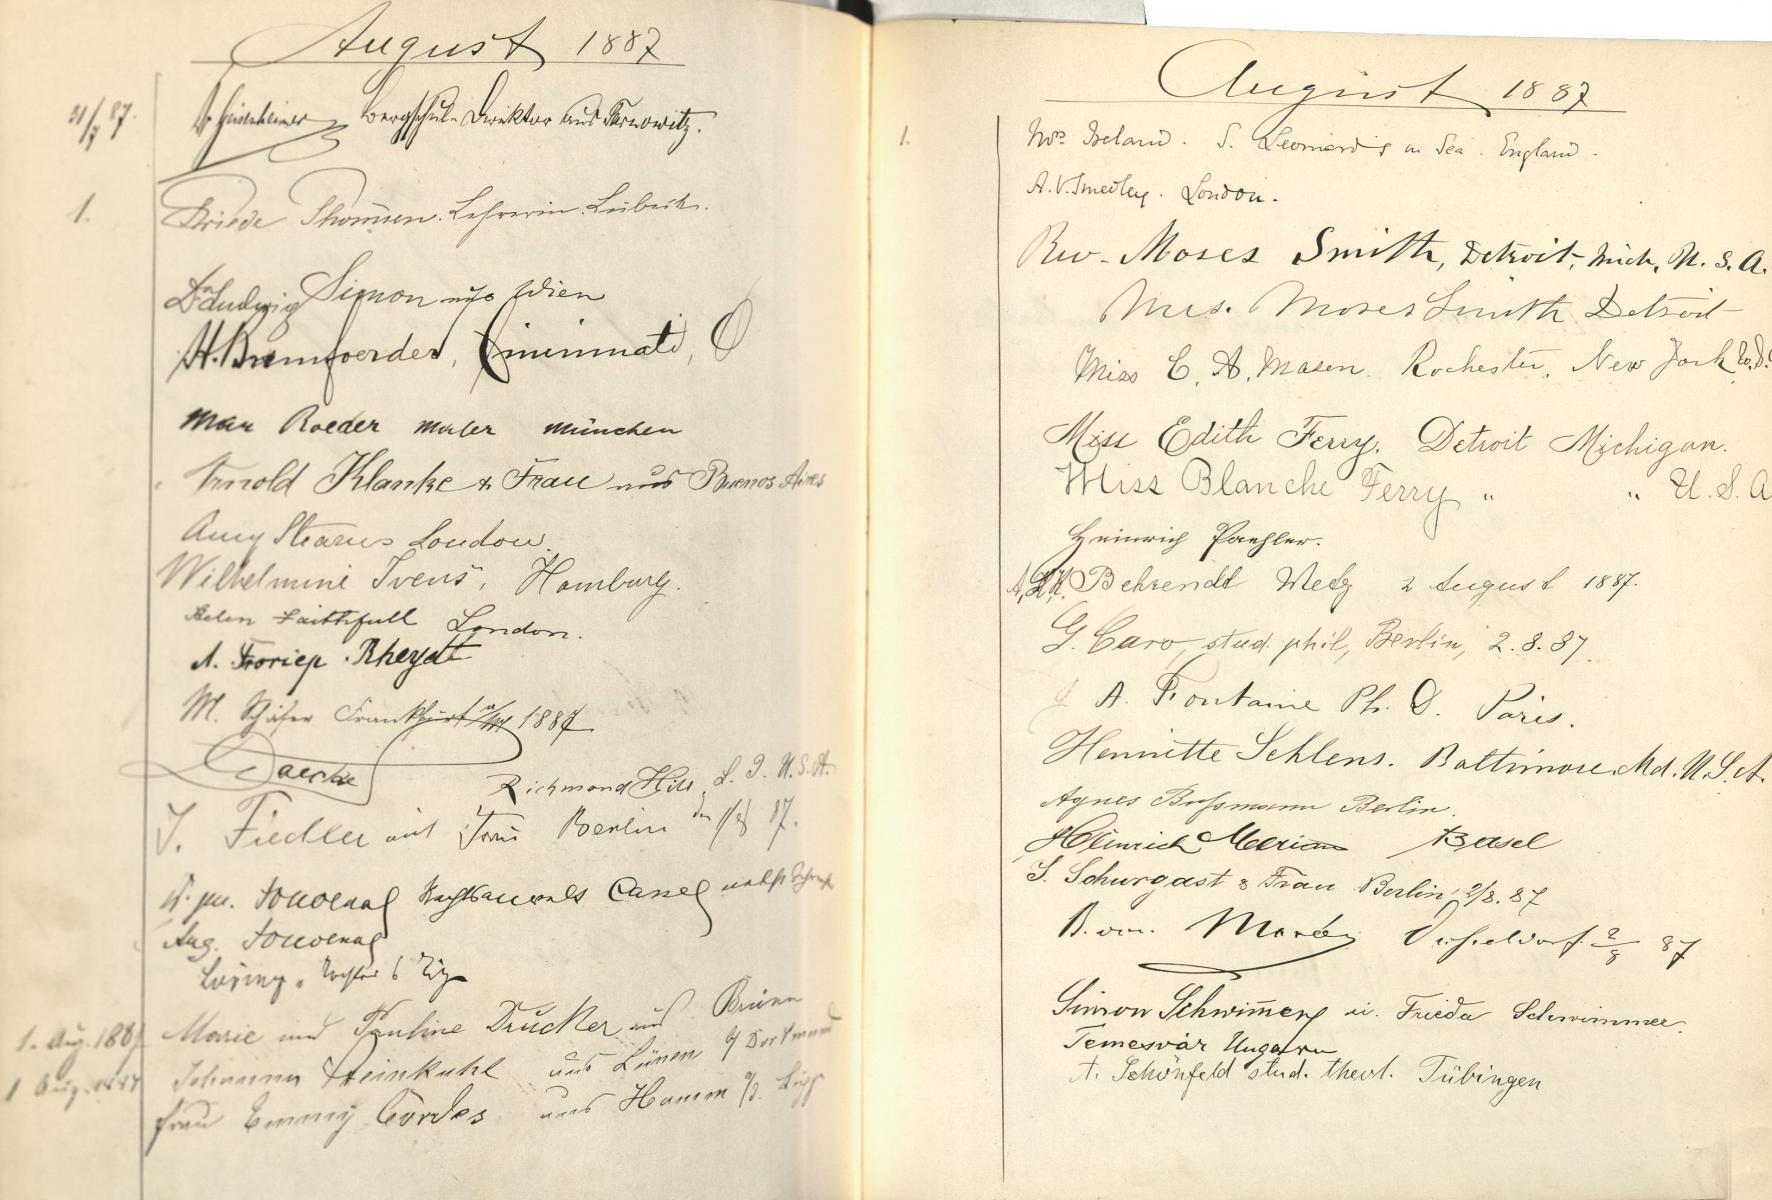 August 1887
31/7 87. Bergschul-Direktor aus Tarnowitz.
1. Friede Thomsen. Lehrerin. Lübeck.
Dr Ludwig Simon aus Wien
H. Bremfoerder, Cincinnati, O
Max Roeder Maler München
Arnold Klanke & Frau aus Buenos Aires
Amy Stearns London.
Wilhelmine Ivens, Hamburg.
Helen Faithfull London.
A. Froriep. Rheydt
M. Schäfer Frankfurt a/M 1887
Daecke Richmond Hill, L. I. U.S.A.
J. Fiedler mit Frau Berlin den 1/8 87.
Rechtsanwalt Cassel nebst
Aug.
1. Aug. 1887 Marie und Pauline Drucker aus Brünn
1 Aug. 1887 Johanna Steinkuhl aus Lünen b/ Dortmund
Frau Emmy Cordes aus Hamm a/d. Lippe
August 1887
1. Mrs Ireland. S. Leonard's on Sea. England.
A. V. Smedley. London.
Rev. Moses Smith, Detroit, Mich, U. S. A.
Mrs. Moses Smith Detroit
Miss C. A. Mason Rochester, New York
Miss Edith Ferry, Detroit Michigan.
Miss Blanche Ferry " " U. S. A
Heinrich Paehler.
Behrendt Metz 2 August 1887.
G. Caro, stud. phil, Berlin, 2.8.87.
A. Fontaine Ph. D. Paris.
Henriette Schlens. Baltimore, Md. U. S. A.
Agnes Bussmann Berlin.
Heinrich Merian Basel
S. Schurgast & Frau Berlin, 2/8. 87
B. von Düsseldorf. 2/8 87
Simon Schwimmer u. Frieda Schwimmer.
Temesvár Ungarn
A. Schönfeld stud. theol. Tübingen